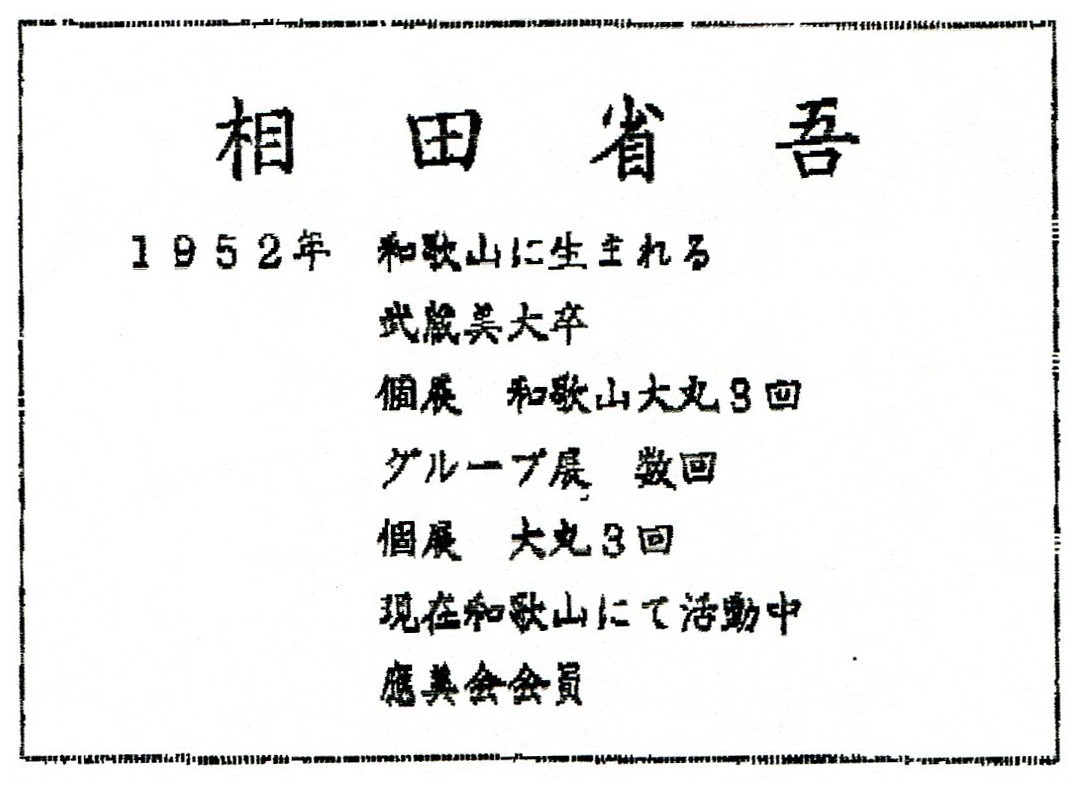 相田省吾
1952年 和歌山に生まれる
武蔵美大卒
個展 和歌山大丸3回
グループ展 数回
個展 大丸3回
現在和歌山にて活動中
應美会会員